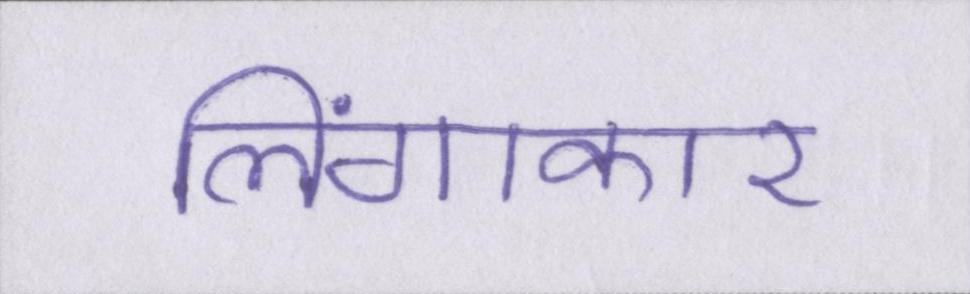 लिंगाकार